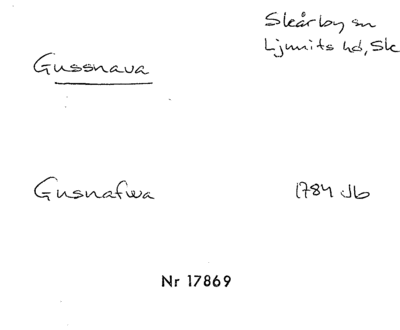 Skårby sn
Ljunits hd, Sk
Gussnava
Gusnafwa 1784 Jb
Nr 17869